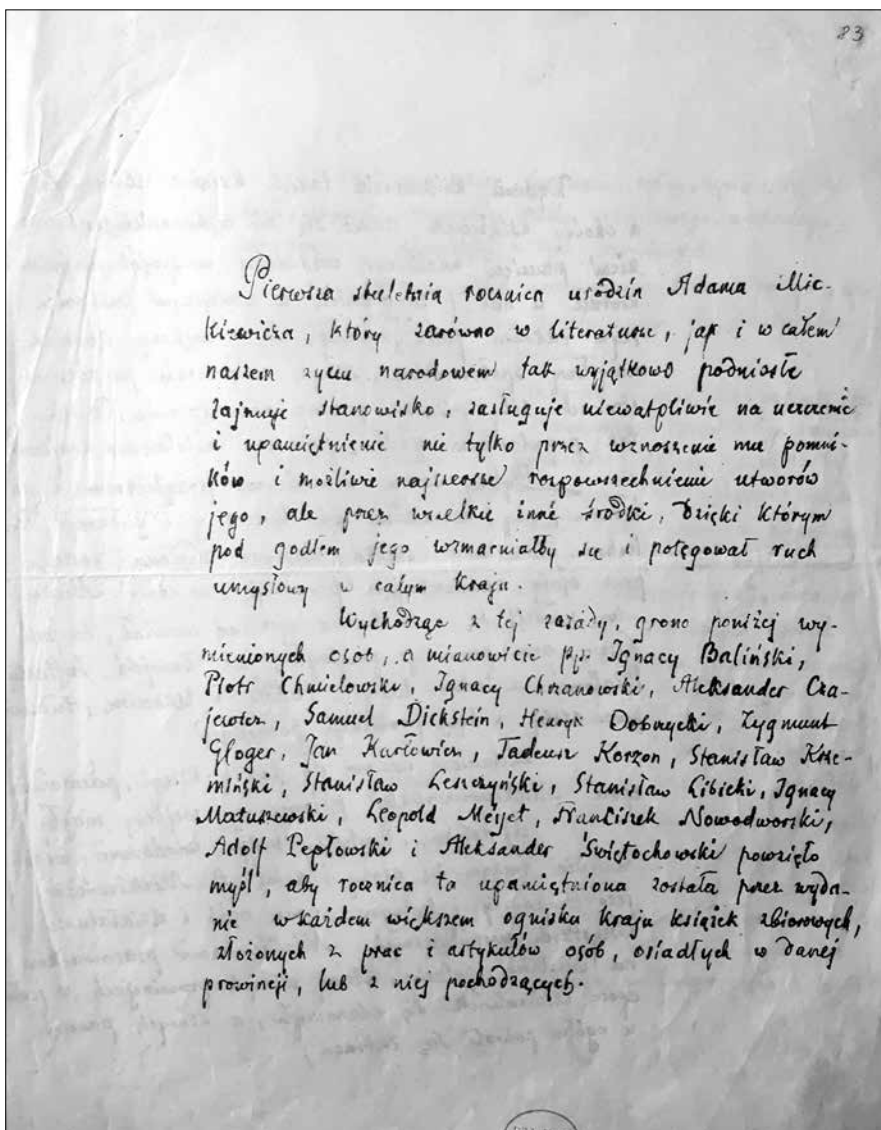 83
Pierwsza stuletnia rocznica urodzin Adama Mic-
kiewicza, który zarówno w literaturze, jak i w całem
naszem życiu narodowem tak wyjątkowo podniosłe
zajmuje stanowisko, zasługuje niewątpliwie na uczczenie
i upamiętnienie nie tylko przez wznoszenie mu pomni-
ków i możliwie najszersze rozpowszechnienie utworów
jego, ale przez wszelkie inne środki, dzięki którym
pod godłem jego wzmacniałby się i potęgował ruch
umysłowy w całym kraju.
Wychodząc z tej zasady, grono poniżej wy-
mienionych osób, a mianowicie pp. Ignacy Baliński,
Piotr Chmielowski, Ignacy Chrzanowski, Aleksander Cza-
jewicz, Samuel Dickstein, Henryk Dobrzycki, Zygmunt
Gloger, Jan Karłowicz, Tadeusz Korzon, Stanisław Krze-
miński, Stanisław Leszczyński, Stanisław Libicki, Ignacy
Matuszewski, Leopold Méyet, Franciszek Nowodworski,
Adolf Pepłowski i Aleksander Świętochowski powzięło
myśl, aby rocznica ta upamiętniona została przez wyda-
nie w każdem większem ognisku kraju książek zbiorowych,
złożonych z prac i artykułów osób, osiadłych w danej
prowincji, lub z niej pochodzących.